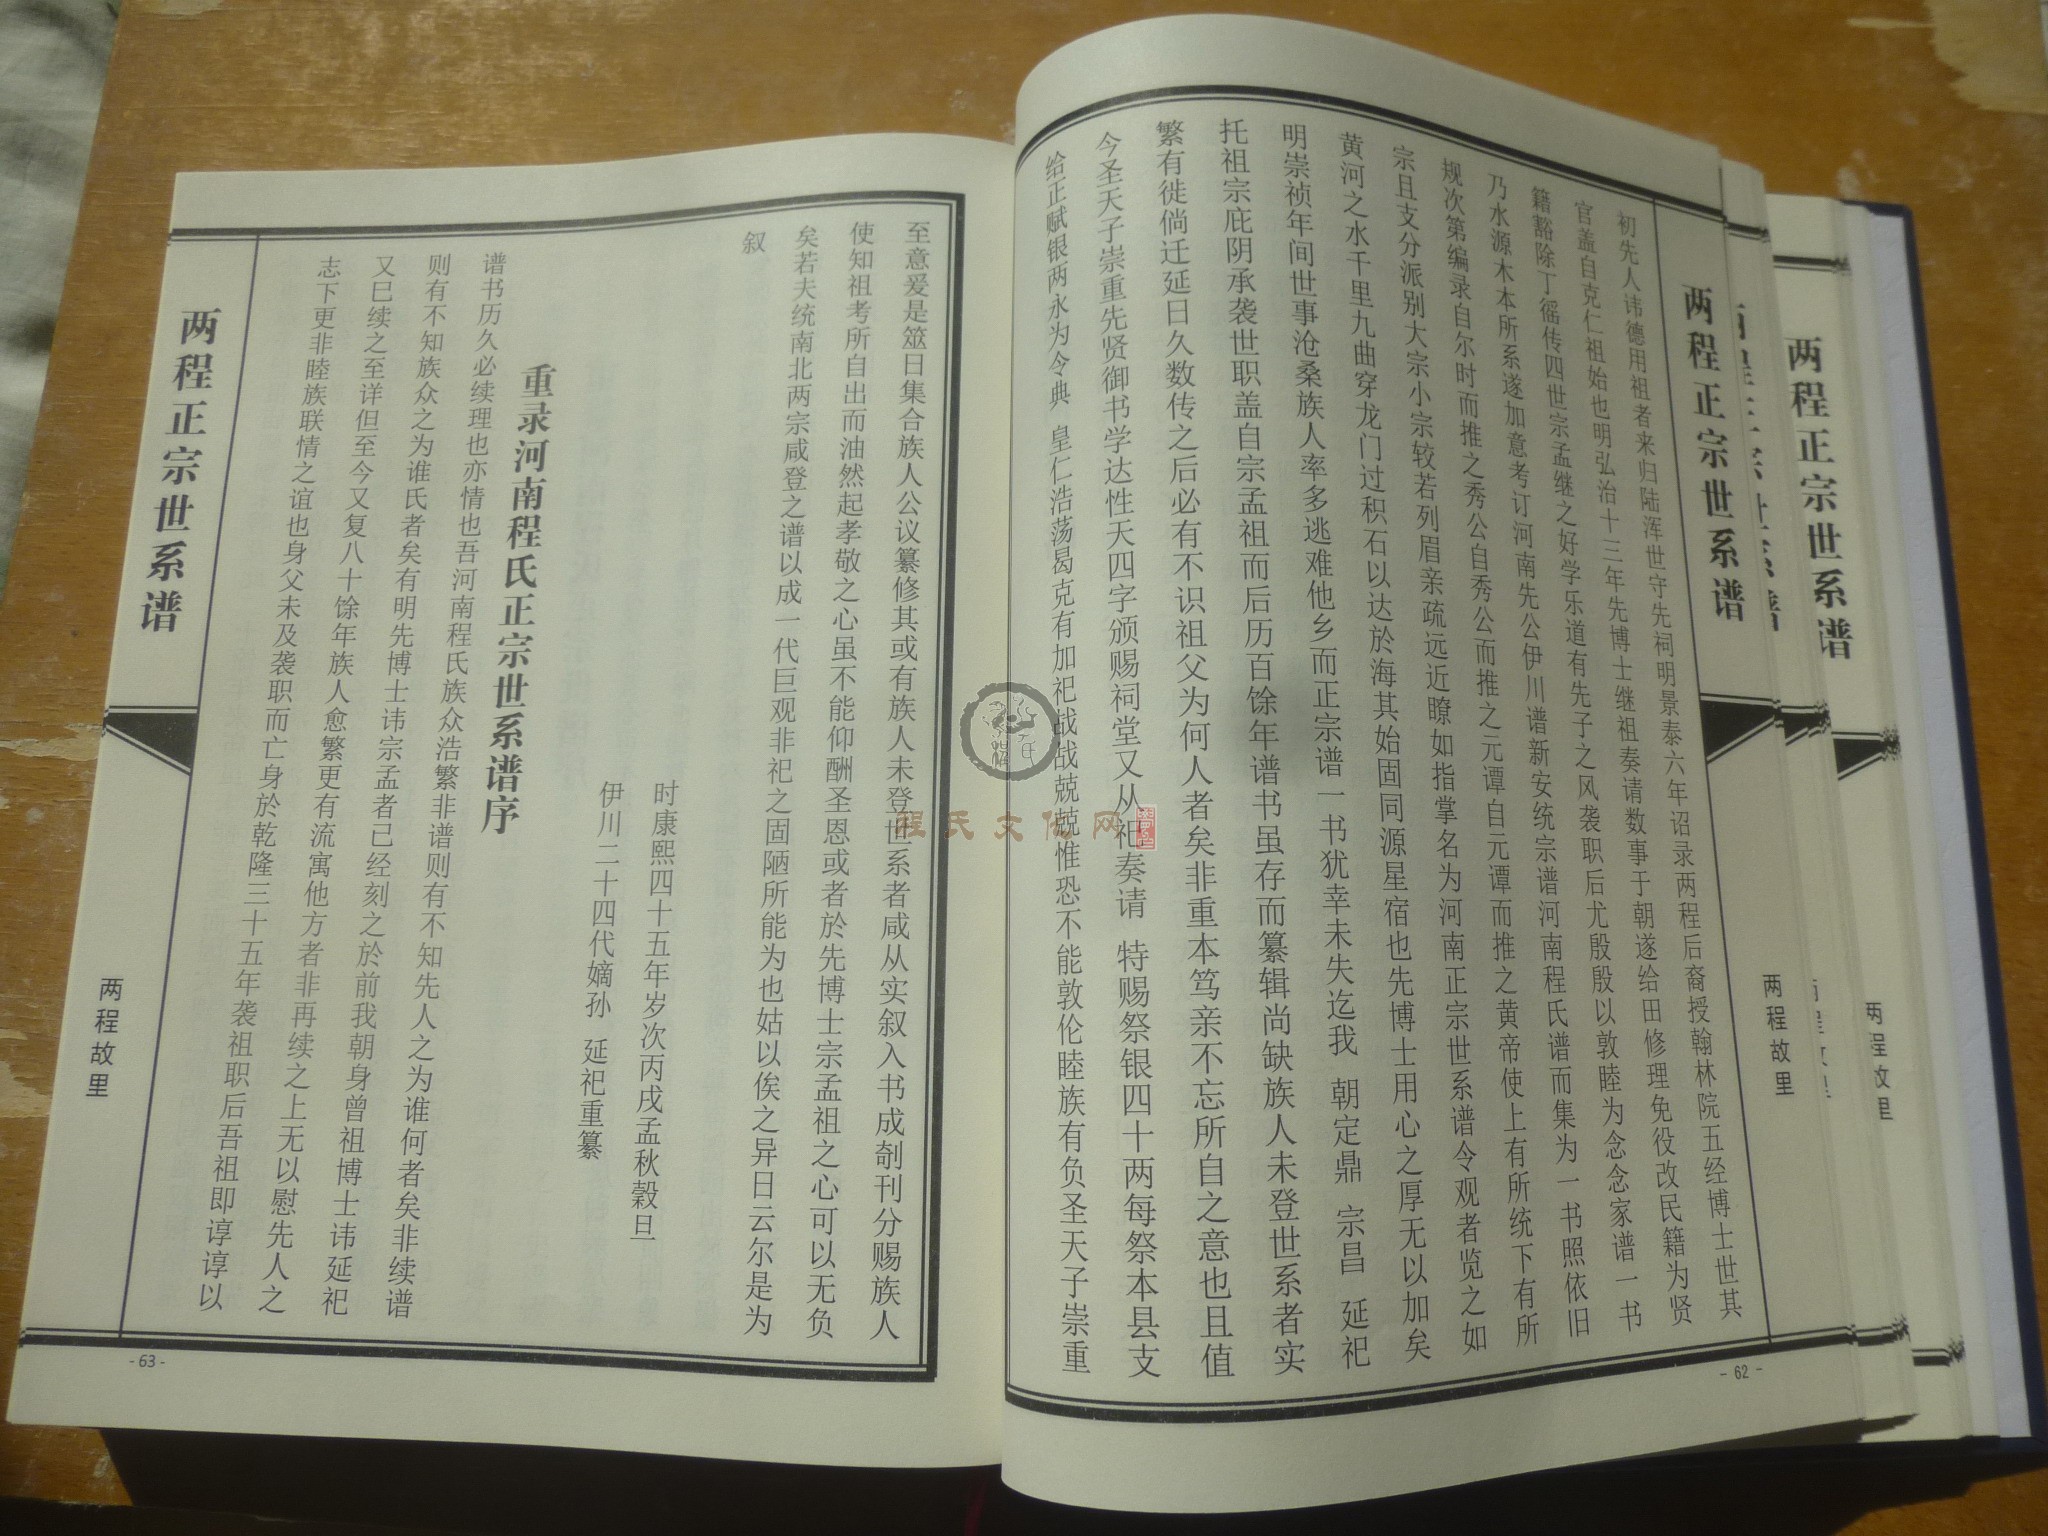 两程正宗世系谱
两程故里
初先人讳德用祖者来归陆浑世守先祠明景泰六年诏录两程后裔授翰林院五经博士世其
官盖自克仁祖始也明弘治十三年先博士继祖奏请数事于朝遂给田修理免役改民籍为贤
籍豁除丁徭传四世宗孟继之好学乐道有先子之风袭职后尤殷殷以敦睦为念念家谱一书
乃水源木本所系遂加意考订河南先公伊川谱新安统宗谱河南程氏谱而集为一书照依旧
规次第编录自尔时而推之秀公自秀公而推之元谭自元谭而推之黄帝使上有所统下有所
宗且支分派别大宗小宗较若列眉亲疏远近瞭如指掌名为河南正宗世系谱令观者览之如
黄河之水千里九曲穿龙门过积石以达於海其始固同源星宿也先博士用心之厚无以加矣
明崇祯年间世事沧桑族人率多逃难他乡而正宗谱一书犹幸未失迄我 朝定鼎 宗昌 延祀
托祖宗庇阴承袭世职盖自宗孟祖而后历百馀年谱书虽存而纂辑尚缺族人未登世系者实
繁有徙倘迁延日久数传之后必有不识祖父为何人者矣非重本笃亲不忘所自之意也且值
今圣天子崇重先贤御书学达性天四字颁赐祠堂又从祀奏请 特赐祭银四十两每祭本县支
给正赋银两永为令典 皇仁浩荡曷克有加祀战战兢兢惟恐不能敦伦睦族有负圣天子崇重
- 62 -
至意爰是筮日集合族人公议纂修其或有族人未登世系者咸从实叙入书成刳刊分赐族人
使知祖考所自出而油然起孝敬之心虽不能仰酬圣恩或者於先博士宗孟祖之心可以无负
矣若夫统南北两宗咸登之谱以成一代巨观非祀之固陋所能为也姑以俟之异日云尔是为
叙
时康熙四十五年岁次丙戌孟秋榖旦
伊川二十四代嫡孙 延祀重纂
重录河南程氏正宗世系谱序
谱书历久必续理也亦情也吾河南程氏族众浩繁非谱则有不知先人之为谁何者矣非续谱
则有不知族众之为谁氏者矣有明先博士讳宗孟者已经刻之於前我朝身曾祖博士讳延祀
又巳续之至详但至今又复八十馀年族人愈繁更有流寓他方者非再续之上无以慰先人之
志下更非睦族联情之谊也身父未及袭职而亡身於乾隆三十五年袭祖职后吾祖即谆谆以
两程正宗世系谱
两程故里
- 63 -
两程正宗世系谱
两程故里
程氏文化网